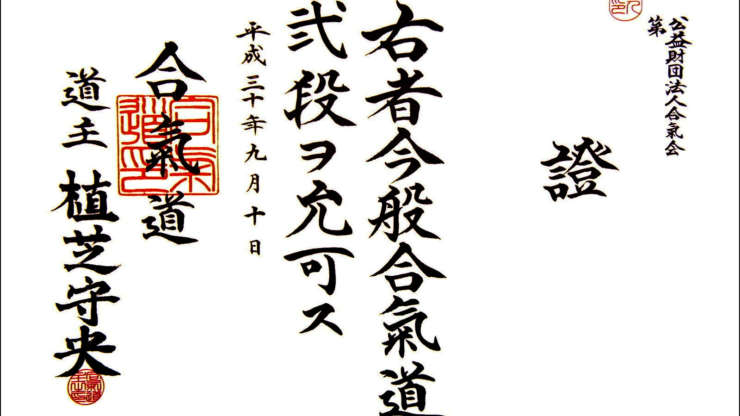 公益財団法人合氣会
第
證
右者今般合氣道
弐段ヲ允可ス
平成三十年九月十日
合氣道
道主 植芝守央